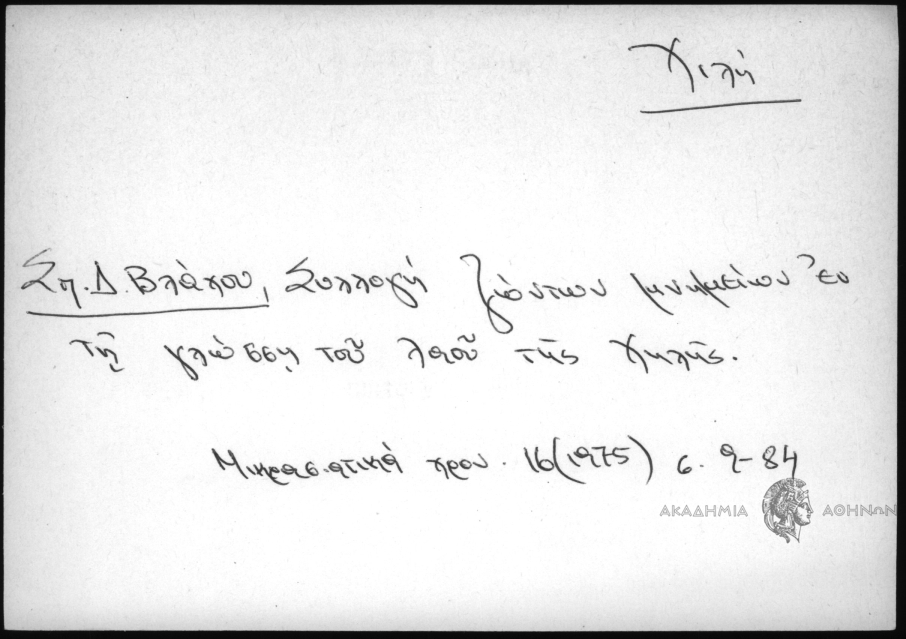 Χιλή
Σπ. Δ. Βλάχου, Συλλογή ζώντων μνημείων ἐν
τῇ γλώσσῃ τοῦ λαοῦ τῆς Χηλῆς.
Μικρασιατικὰ χρον. 16(1975) σ. 9-84
ΑΚΑΔΗΜΙΑ ΑΘΗΝΩΝ